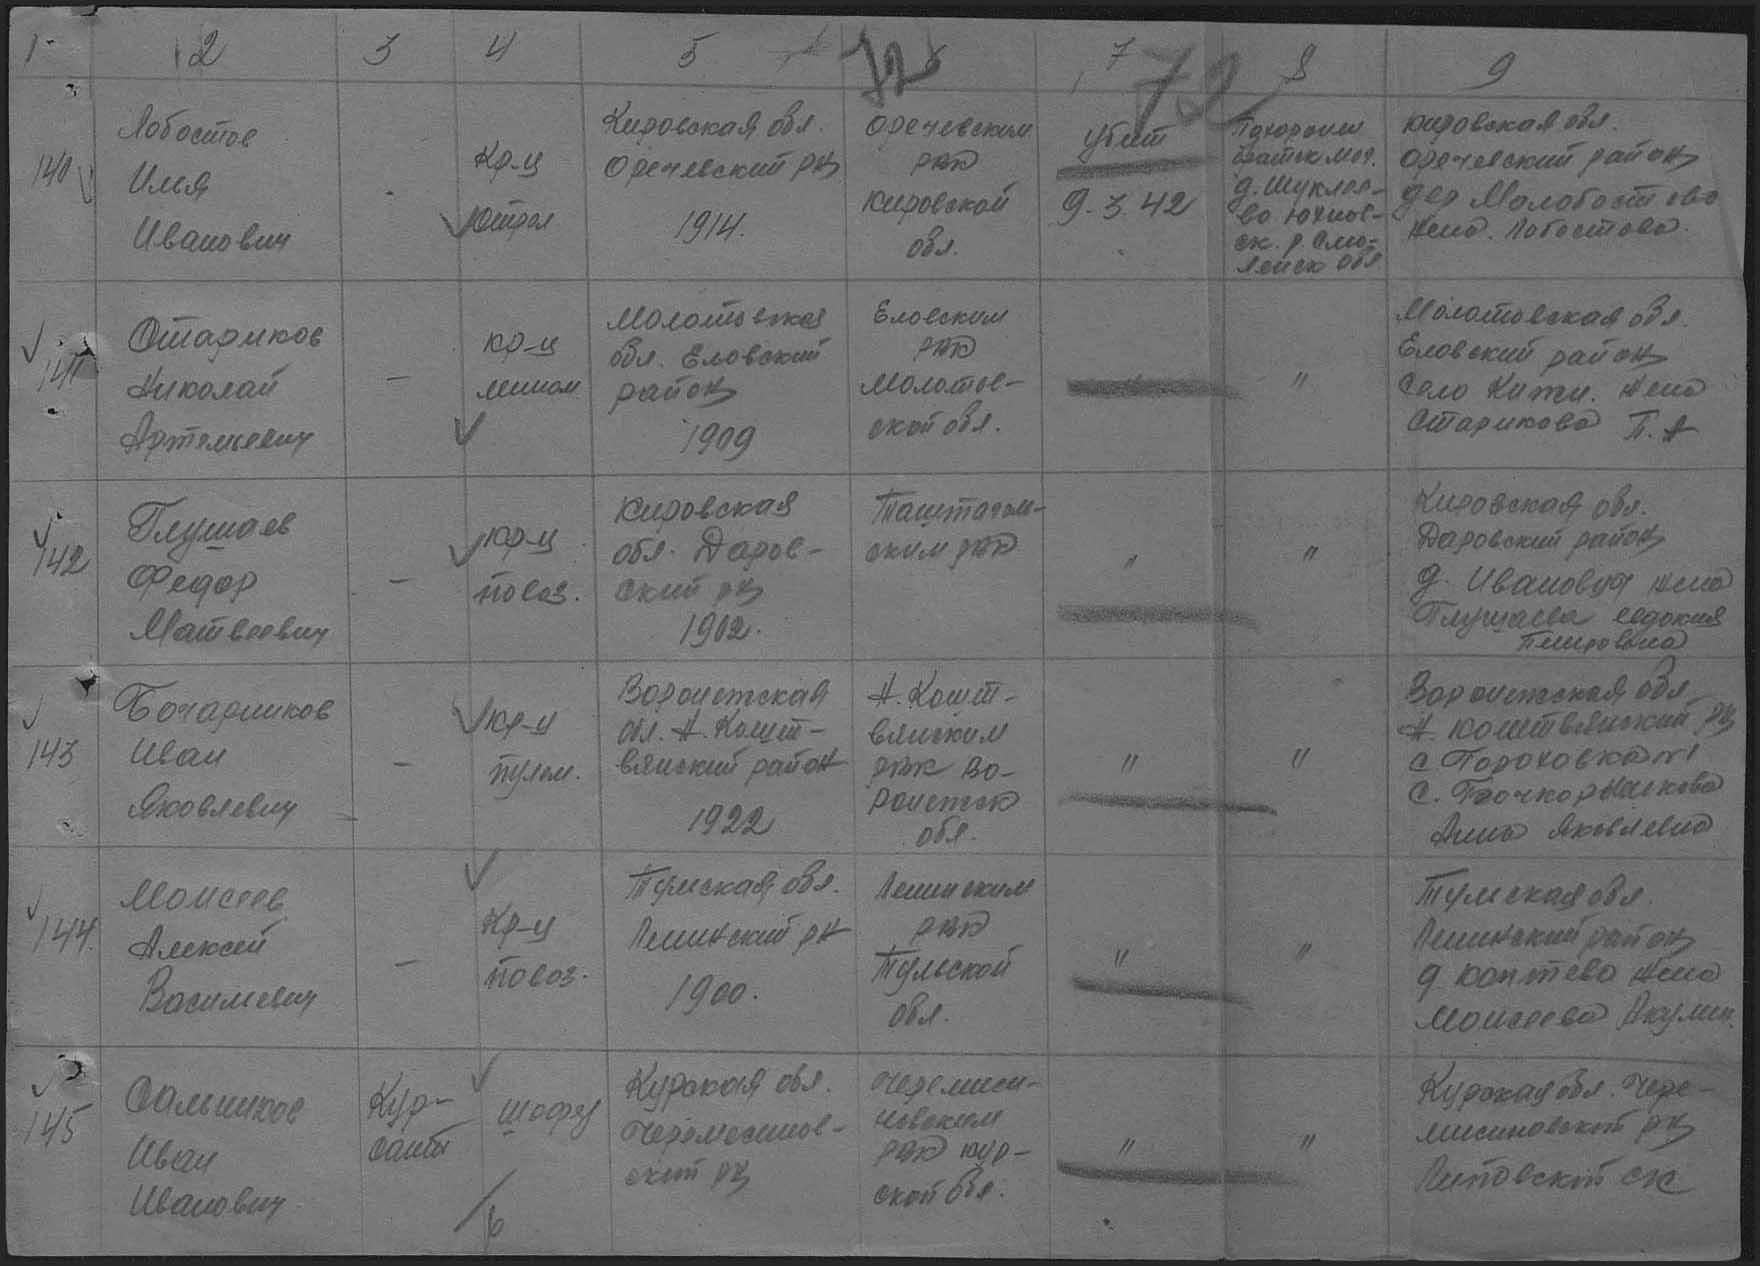 1 2 3 4 5 6 7 8 9
72
72
140
Лобостов
Илья
Иванович
-
Кр-ц
Кировская обл.
Оречевский рн
1914.
Оречевским
рвк
Кировской
обл.
убит
9.3.42
Похоронен
братск мог.
д. Шуклее-
во Юхнов-
ск. р. Смо-
ленск обл
Кировская обл.
Оречевский район
дер Молобостово
жена. Лобостова.
141
Стариков
Николай
Артемьевич
-
кр-ц
Молотовская
обл. Еловский
район
1909
Еловским
рвк
Молотов-
ской обл.
"
"
Молотовская обл.
Еловский район
Село жена
Старикова П. А
142
Глушаев
Федор
Матвеевич
-
кр-ц
повоз.
Кировская
обл. Даров-
ский рн
1902.
Таштагол-
ским рвк
"
"
Кировская обл.
Даровский район
д. жена
Глушаева Евдокия
143
Бочарников
Иван
Яковлевич
-
кр-ц
пулем.
Воронежская
обл. Н.
район
1922
Н.
рвк Во-
ронежск
обл.
"
"
Воронежская обл
Н. рн
с Пороховка
с.
Анна Яковлевна
144.
Моисеев
Алексей
Васильевич
-
Кр-ц
повоз.
Тульская обл.
Ленинский рн
1900.
Ленинским
рвк
Тульской
обл.
"
"
Тульская обл.
Ленинский район
д Коптево жена
Моисеева Акулин.
145
Сальников
Иван
Иванович
Кур-
сант
шофер
Курская обл.
Черемисинов-
ский рн
Черемиси-
новским
рвк Кур-
ской обл.
"
"
Курская обл. Чере-
мисиновский рн
Липовский с/с